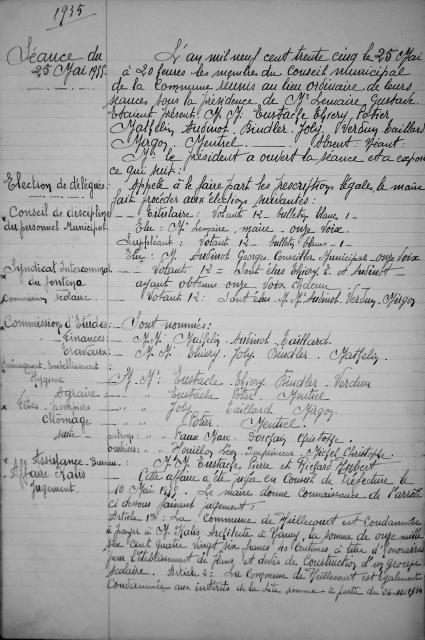 1935
Séance du
25 Mai 1935.
L'an mil neuf cent trente cinq le 25 Mai
à 20 heures les membres du Conseil municipal
de la Commune réunis au lieu ordinaire de leurs
séances sous la présidence de Mr Lemaire, Gustave
Etaient présent: M.M. Eustache Thiery, Potier
Mathelin Audinot, Bindler. Joly Verdun Gaillard
Mirgon Mentrel. Absent
Mr. le président a ouvert la séance et a exposé
ce qui suit:
Election de délégués:
Appelé à le faire part les prescriptions légales, le maire
fait procéder aux élections suivantes:
Conseil de discipline
du personnel Municipal
Titulaire: Votants 12 - bulletin blanc 1 -
Elu: Mr Lemaire, maire - onze voix.
Suppléant: Votants 12 - bulletin blanc - 1 -
Elu: Mr Audinot Georges Conseiller Municipal - onze voix
Syndicat Intercommunal
du
Votants 12 = Sont élus Thiery E. et Audinot -
ayant obtenus onze voix chacun
Commission scolaire.
Votants 12: Sont élus M.M. Audinot. Verdun, Mirgon
Commission d'Etudes:
Sont nommés:
Finances:
M.M. Mathelin Audinot. Gaillard.
Travaux:
M.M. Thiery Joly Bindler. Mathelin
Aménagement, Embellissement
Hygiène
M.M. Eustache Thiery Bindler. Verdun
Agraire
" " Eustache Potier. Mentrel
Fêtes, Pompiers
" " Joly. Gaillard Mirgon
Chômage
" " Potier. Mentrel.
suite -
patrons: " " Vaux Marc. Christophe
ouvriers: " " Léon Imprimeur. Michel Christophe.
Assistance. Bureau.
M.M. Eustache Pierre et Richard Hubert
Affaire Kaïs
Jugement.
Cette affaire a été jugée en Conseil de Préfecture le
10 Mai 1935. Le maire donne connaissance de l'arrêté
ci dessous faisant jugement:
Article 1er: La Commune de Heillecourt est condamnée
à payer à Mr Kaïs Architecte à Nancy, la somme de onze mille
cent quatre vingt six francs centimes à titre d'honoraires
pour l'établissement de plans et devis de construction d'un groupe
scolaire. Article 2= La Commune de Heillecourt est également
condamnée aux intérêts de la dite somme - à partir du 26-12-1934